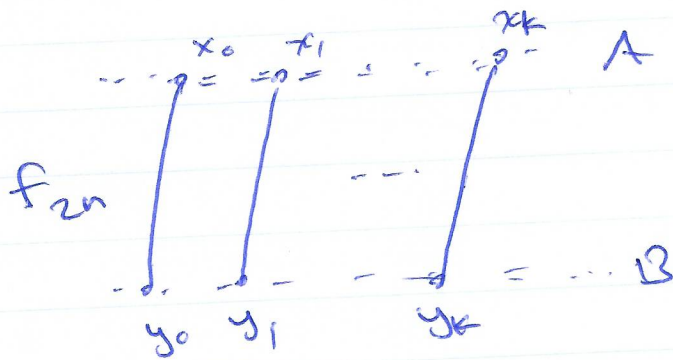 x₀ x₁ xₖ A
f₂ₙ
B
y₀ y₁ yₖ